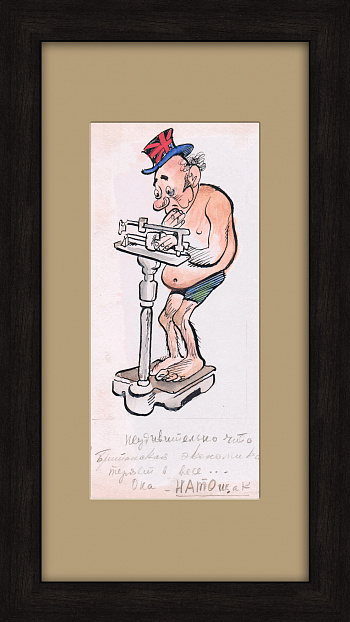 Неудивительно что
Британская экономика
теряет в весе...
Она - НАТОщак